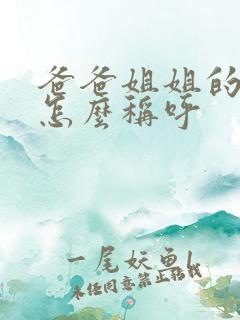 爸爸姐姐的
怎麼稱呼
一尾妖鱼l
未经同意禁止转载